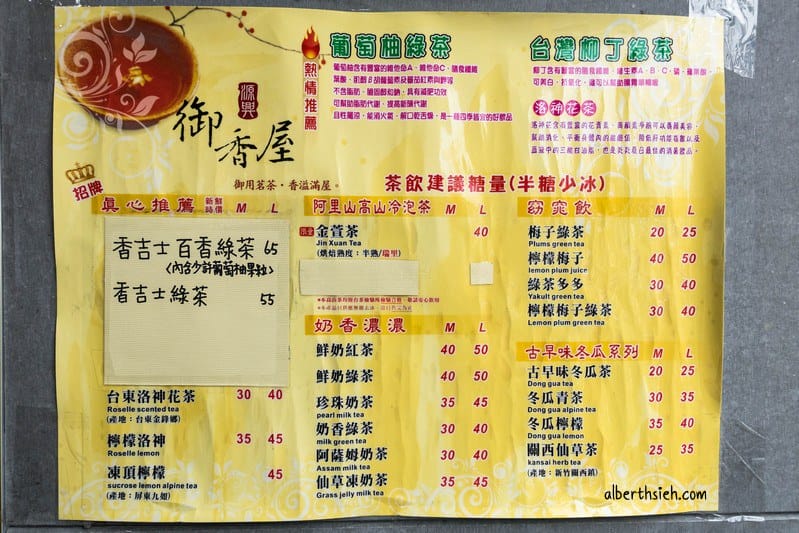 源興
御香屋
御用茗茶・香溢滿屋。
熱情推薦
葡萄柚綠茶
不含脂肪、
可幫助脂肪代謝、提高新陳代謝
台灣柳丁綠茶
洛神花茶
茶飲建議糖量(半糖少冰)
招牌
真心推薦 新鮮時價 M L
香吉士百香綠茶 65
(內含少許葡萄柚果粒)
香吉士綠茶 55
台東洛神花茶 30 40
Roselle scented tea
(產地：台東金鋒鄉)
檸檬洛神 35 45
Roselle lemon
凍頂檸檬 45
sucrose lemon alpine tea
(產地：屏東九如)
阿里山高山冷泡茶 M L
限量 金萱茶 40
Jin Xuan Tea
(烘焙熟度：半熟/瑞里)
奶香濃濃 M L
鮮奶紅茶 40 50
鮮奶綠茶 40 50
珍珠奶茶 35 45
pearl milk tea
奶香綠茶 30 40
milk green tea
阿薩姆奶茶 30 40
Assam milk tea
仙草凍奶茶 35 45
Grass jelly milk tea
窈窕飲 M L
梅子綠茶 20 25
Plums green tea
檸檬梅子 40 50
lemon plum juice
綠茶多多 30 40
Yakult green tea
檸檬梅子綠茶 30 40
Lemon plum green tea
古早味冬瓜系列 M L
古早味冬瓜茶 20 25
Dong gua tea
冬瓜青茶 30 35
Dong gua alpine tea
冬瓜檸檬 35 40
Dong gua lemon
關西仙草茶 25 35
kansai herb tea
(產地：新竹關西鎮)
alberthsieh.com